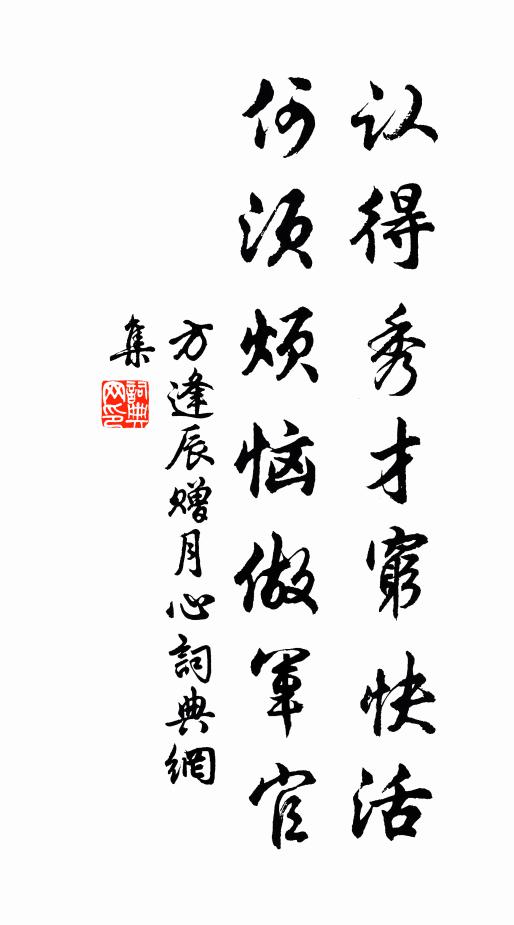 认得秀才穷快活
何须烦恼做军官
方逢辰赠月心詞典網
集
詞典
网印